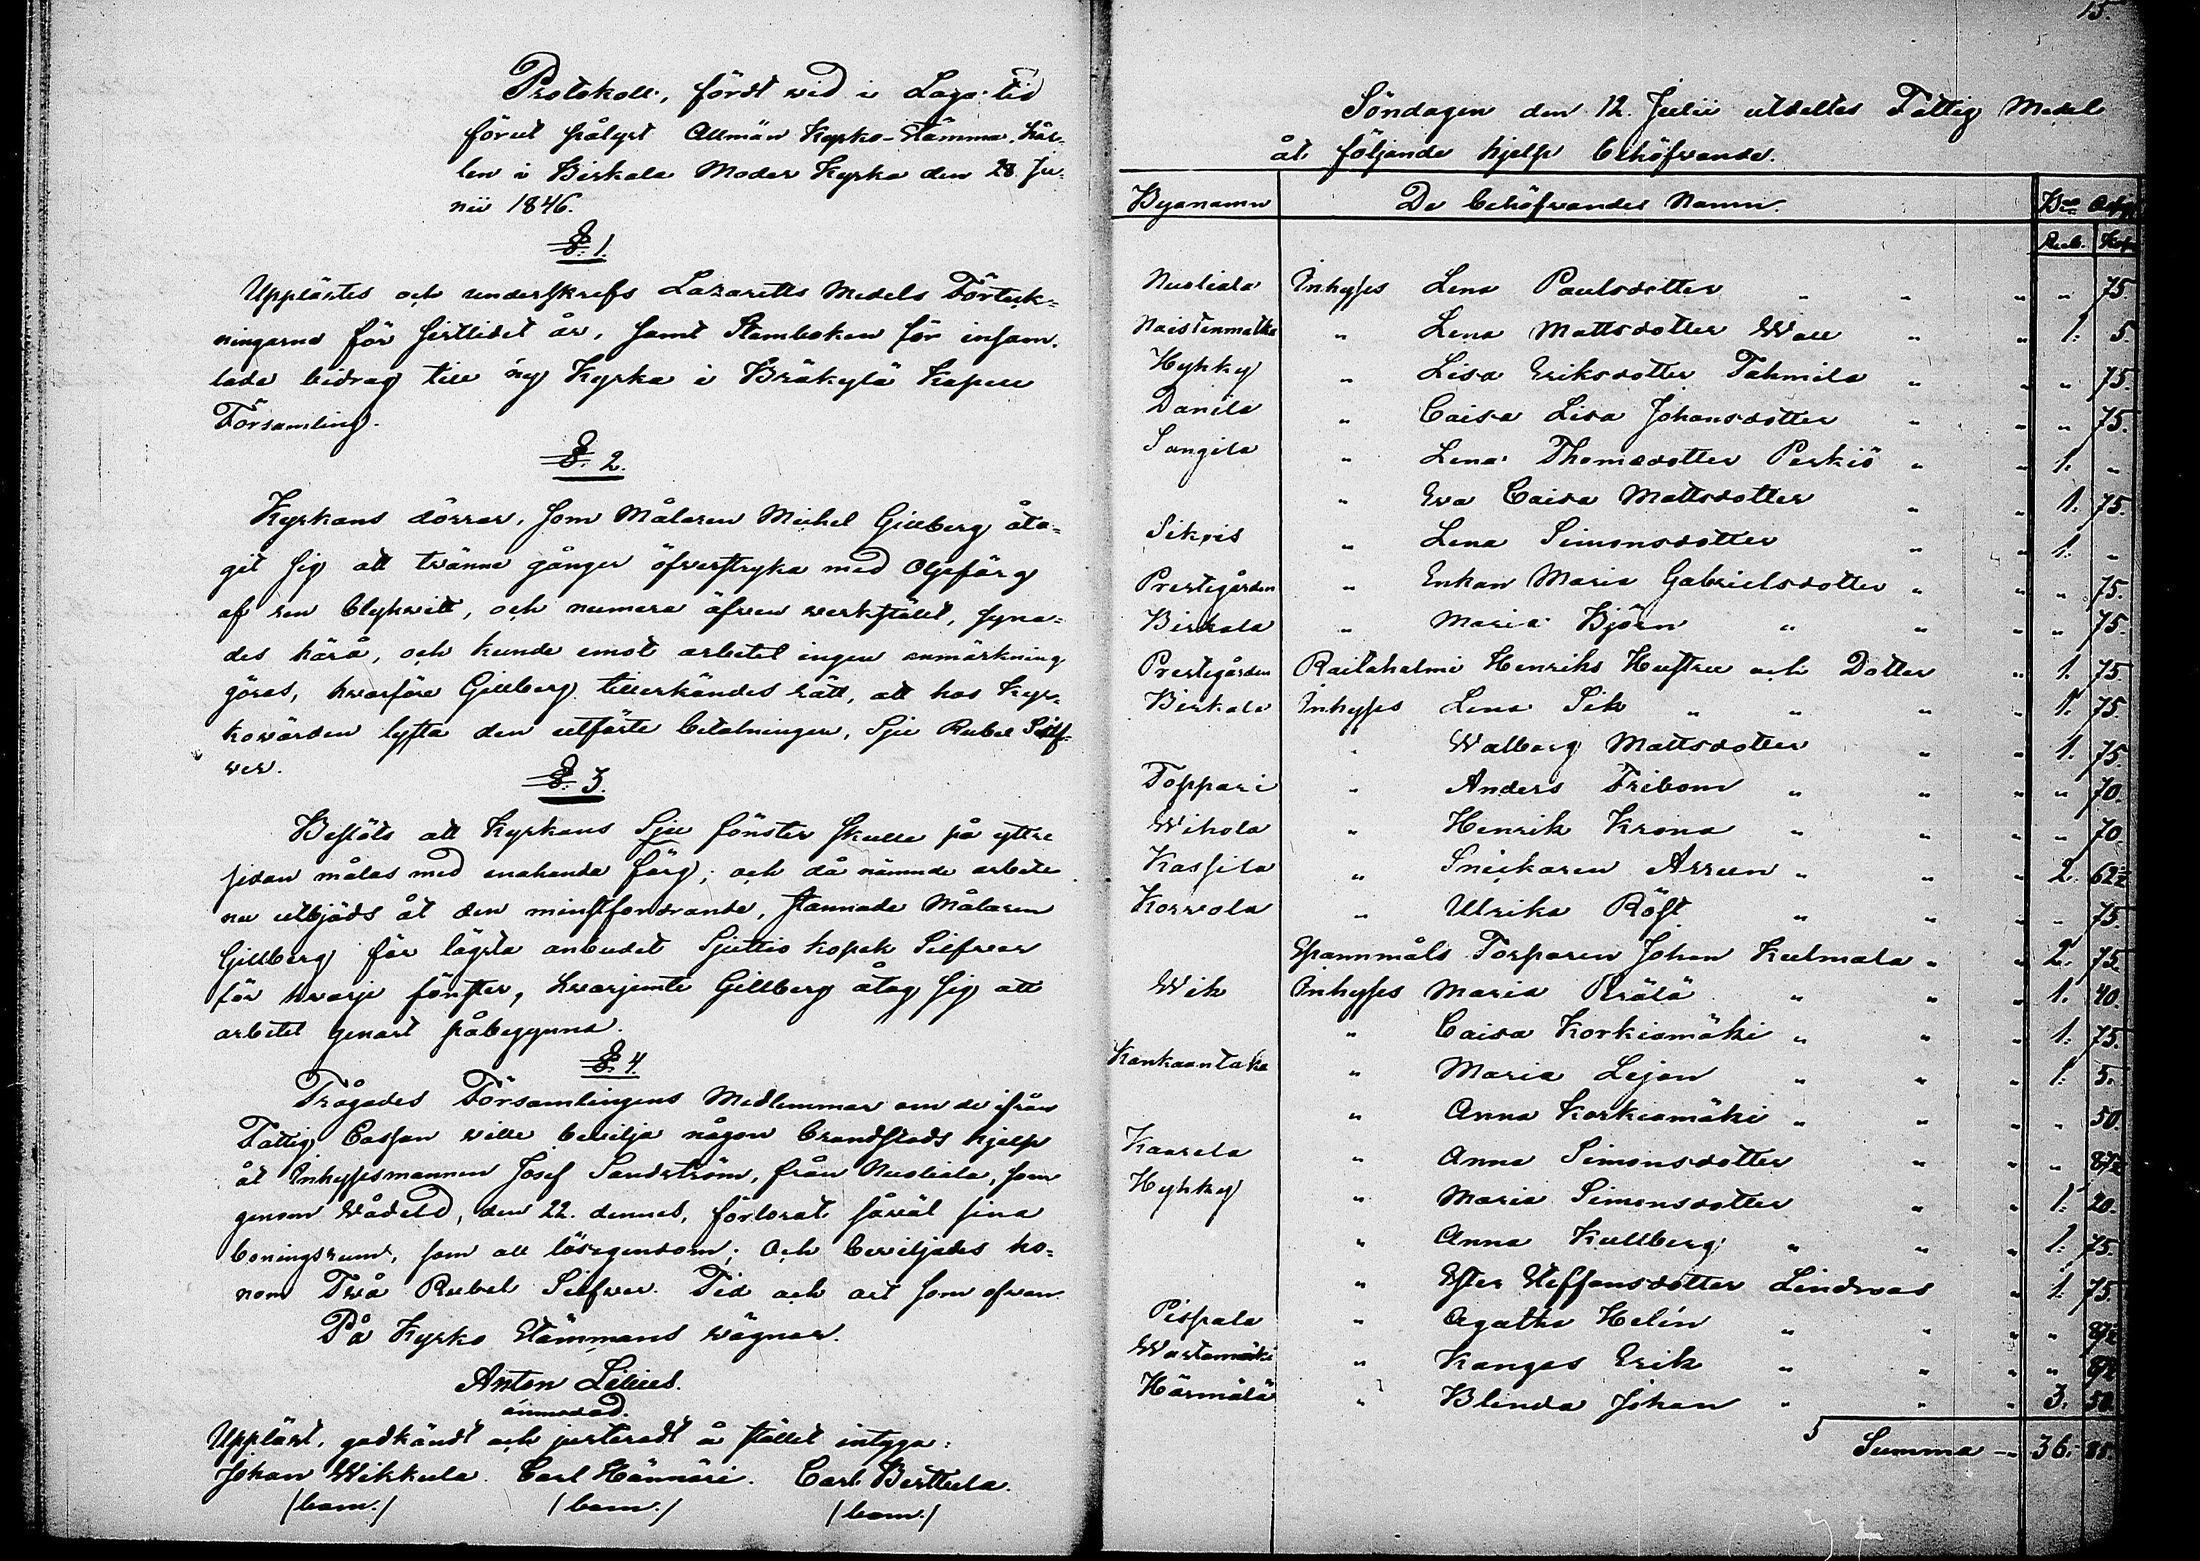 Protokoll, fördt wid i Laga tid
förut pålyst Allmän Kyrko-Stämma, hål-
len i Birkala Moder Kyrka den 28. Ju-
nii 1846.
§. 1.
Upplästes och underskrefs Lazaretts Medels Förteck-
ningarne för förlidet år, samt Stamboken för insam-
lade bidrag till ny Kyrka i Kräkylä Kapell
Församling.
§. 2.
Kyrkans dörrar, som Målaren Michel Gillberg åta-
git sig att tvänne gånger öfverstryka med Oljefärg
af ren blyhwitt, och numera äfven werkstält, syna-
des härå, och kunde emot arbetet ingen anmärkning
göras, hvarföre Gillberg tillerkändes rätt, att hos Kyr-
kovärden lyfta den utfärte betalningen, Sju Rubel Silf-
ver.
§. 3.
Beslöts att Kyrkans Sju fönster skulle på yttre
sidan målas med enahanda färg; och då nämnde arbete
nu utbjöds åt den minstfordrande, stannade Målaren
Gillberg för lägsta anbudet Sjuttio kopek Silfver
för hvarje fönster, hvarjemte Gillberg åtog sig att
arbetet genast påbegynna.
§. 4.
Frågades Församlingens Medlemmar om de ifrån
Fattig Cassan wille bevilja någon brandstods hjelp
åt Inhysesmannen Josef Sandström, från Nuoliala, som
genom wådeld, den 22. dennes, förlorat såväl sina
boningsrum, som all lösegendom; Och beviljades ho-
nom Två Rubel Silfver. Tid och ort som ofvan.
På Kyrko Stämmans vägnar.
Anton Lilius.
Uppläst, godkändt och justeradt å stället intyga:
Johan Wikkula. Carl Hännäri. Carl Berttula.
/bom./ /bom./ /bom./
15.
Söndagen den 12. Julii utdeltes Fattig Medel
åt följande hjelp behöfvande.
Byanamn De behöfvandes Namn. Bco Ass.
Rub. Kop.
Nuoliala Inhyses Lena Paulsdotter " " " " 75.
Naistenmatka " Lena Mattsdotter Wall " " 1. 5.
Hyhky " Lisa Eriksdotter Tahmila " " " 75.
Danila " Caisa Lisa Johansdotter " " " 75.
Sangila " Lena Thomasdotter Perkiö " " 1. "
" Eva Caisa Mattsdotter " " 1. 75.
Sikois " Lena Simonsdotter " " 1. "
Prestegården " Enkan Maria Gabrielsdotter " " " 75.
Birkala " Maria Björn " " " " 75.
Prestegården Raitahalmi Henriks Hustru och Dotter " 1. 75.
Birkala Inhyses Lena Sik " " " " 1. 75.
" Walborg Mattsdotter " " 1. 75.
Toppari " Anders Fribom " " " " 70.
Wihola " Henrik Krona " " " " 70.
Kassila " Snickaren Arreen " " " 2. 62½
Korvola " Ulrika Röst " " " " 75.
Spannmåls Torparen Johan Kulmala " " 2. 75.
Wik Inhyses Maria Perälä " " " 1. 40.
" Caisa Korkiamäki " " " 1. 75.
Kankaantaka " Maria Lejon " " " 1. 5.
" Anna Korkiamäki " " " " 50.
Kaarela " Anna Simonsdotter " " " 87½
Hyhky " Maria Simonsdotter " " 1. 20.
" Anna Kullberg " " " 1. 75.
" Ester Steffansdotter Lindroos " 1. 75.
Pispala " Agatha Helin " " " " 87½
Wartamäki " Kangas Erik " " " " 87½
Härmälä " Blinda Johan " " " 3. 50.
Summa - " 36. 85.